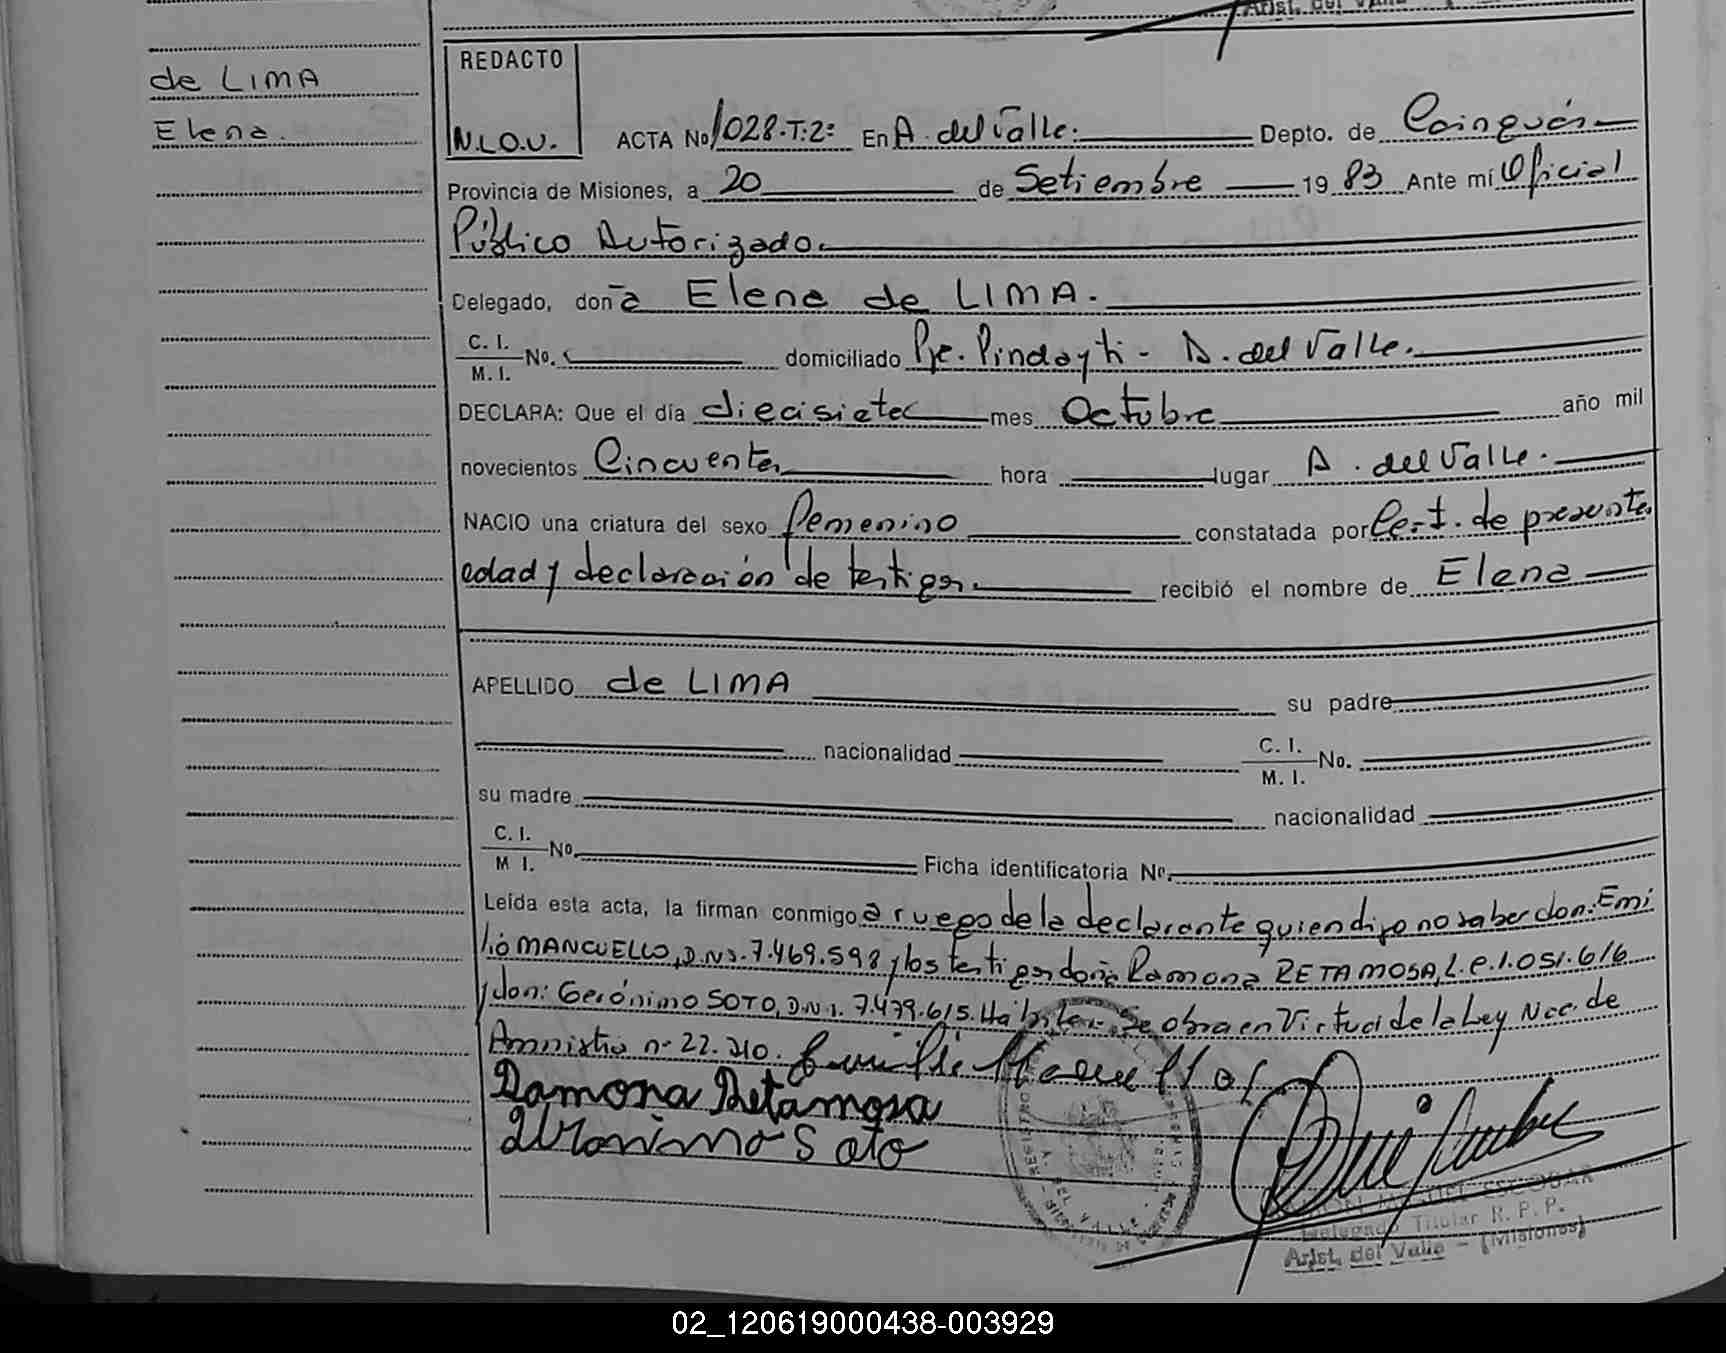 Arist. del Valle
de LIMA
Elena.
REDACTO
N.LO.U.
ACTA No 1028.T:2: En A. del Valle: Depto. de Cainguás
Provincia de Misiones, a 20 de Setiembre 19 83 Ante mí Oficial
Público Autorizado.
Delegado, don a Elena de LIMA.
C. I.
M. I. No. domiciliado Pje. Pindayti - A. del Valle.
DECLARA: Que el día diecisiete mes Octubre año mil
novecientos Cincuenta hora lugar A. del Valle.
NACIO una criatura del sexo femenino constatada por Cert. de presunta
edad y declaración de testigos. recibió el nombre de Elena
APELLIDO de LIMA su padre
nacionalidad C. I.
M. I. No.
su madre nacionalidad
C. I.
M I. No. Ficha identificatoria No.
Leída esta acta, la firman conmigo a ruego de la declarante quien dijo no saber don: Emi
lio MANCUELLO, D.N.I. 7.469.598 y los testigos doña: Ramona RETAMOSA, L.C. 1.051.616
y don: Gerónimo SOTO, D.N.I. 7.479.615. Hábiles. Se obra en Virtud de la Ley Nac. de
Amnistia nº 22.210. Emilio Mancuello
Ramona Retamosa
Geronimo Soto
ESCOBAR
Delegado Titular R. P. P.
Arist. del Valle - (Misiones)
02_120619000438-003929